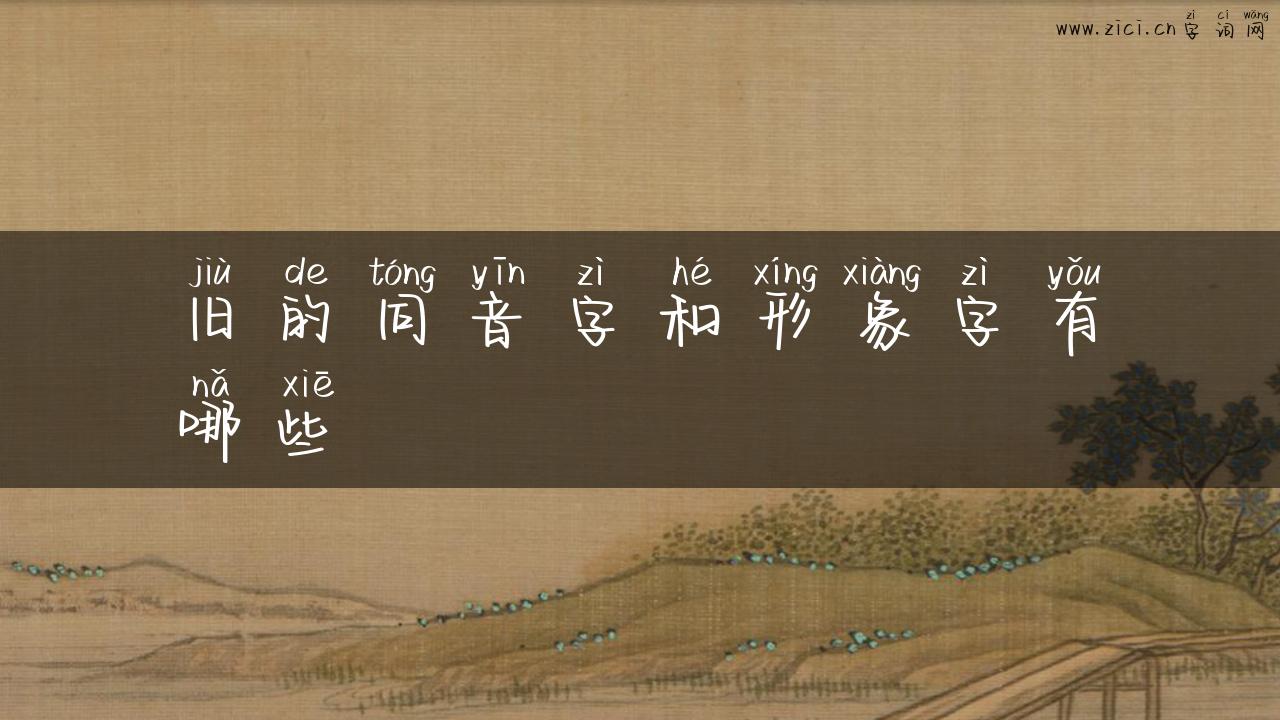 zì cí wǎng
www.zici.cn字词网
jiù de tóng yīn zì hé xíng xiàng zì yǒu
旧的同音字和形象字有
nǎ xiē
哪些